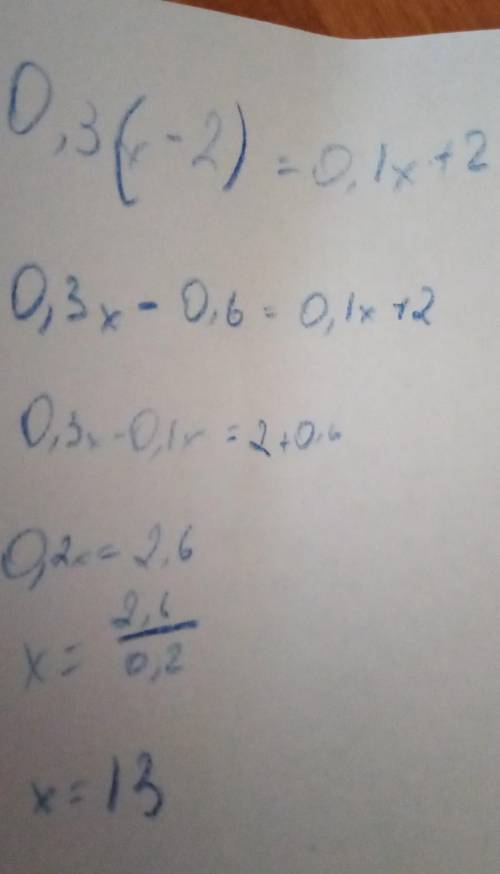 0,3(x-2) = 0,1x+2
0,3x - 0,6 = 0,1x+2
0,3x-0,1x = 2+0,6
0,2x = 2,6
x = 2,6/0,2
x = 13